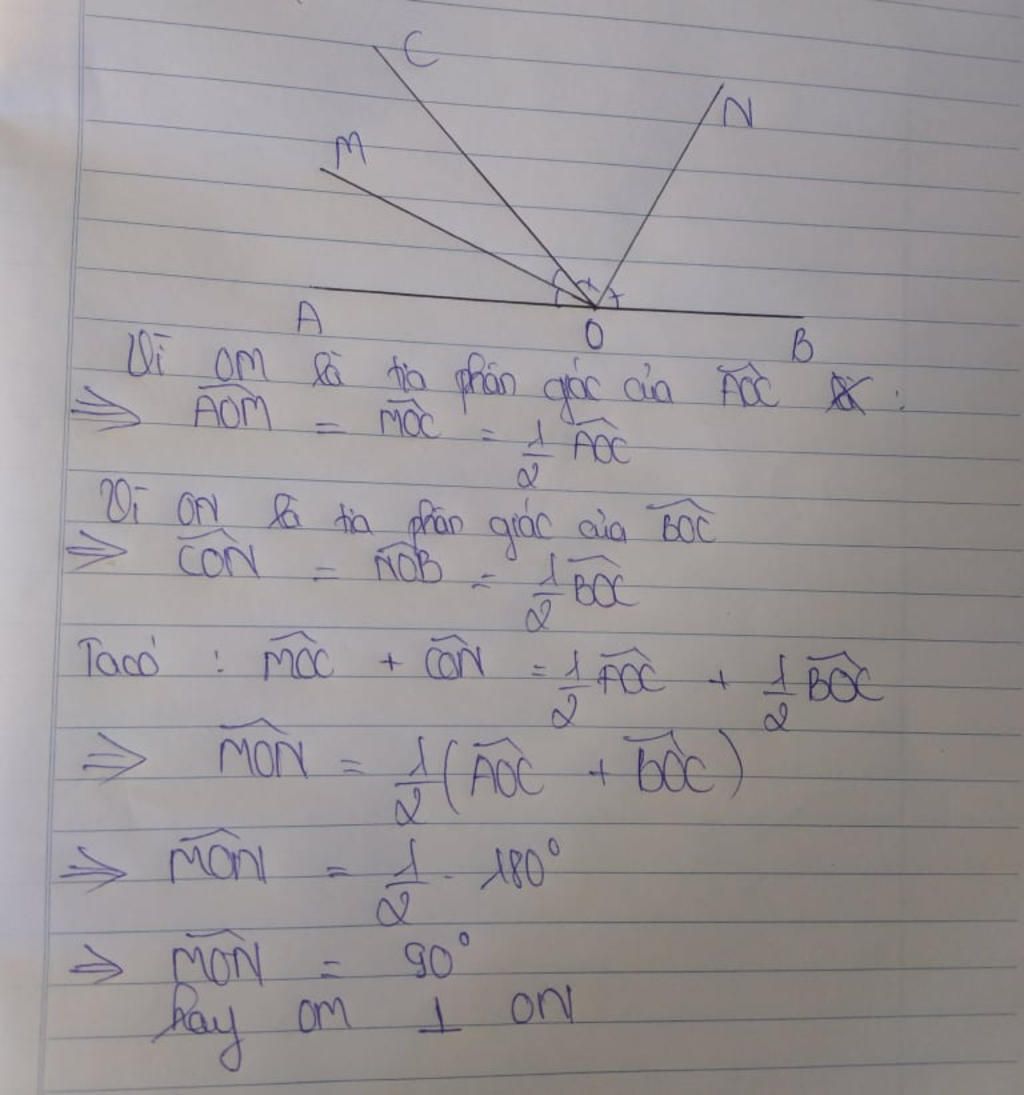 C
N
M
A
O
B
Vì OM là tia phân giác của $\widehat{AOC}$ :
⇒ $\widehat{AOM}$ = $\widehat{MOC}$ = $\frac{1}{2}$ $\widehat{AOC}$
Vì ON là tia phân giác của $\widehat{BOC}$
⇒ $\widehat{CON}$ = $\widehat{NOB}$ = $\frac{1}{2}$ $\widehat{BOC}$
Ta có : $\widehat{MOC}$ + $\widehat{CON}$ = $\frac{1}{2}$ $\widehat{AOC}$ + $\frac{1}{2}$ $\widehat{BOC}$
⇒ $\widehat{MON}$ = $\frac{1}{2}$ ($\widehat{AOC}$ + $\widehat{BOC}$)
⇒ $\widehat{MON}$ = $\frac{1}{2}$ . 180°
⇒ $\widehat{MON}$ = 90°
hay OM ⊥ ON